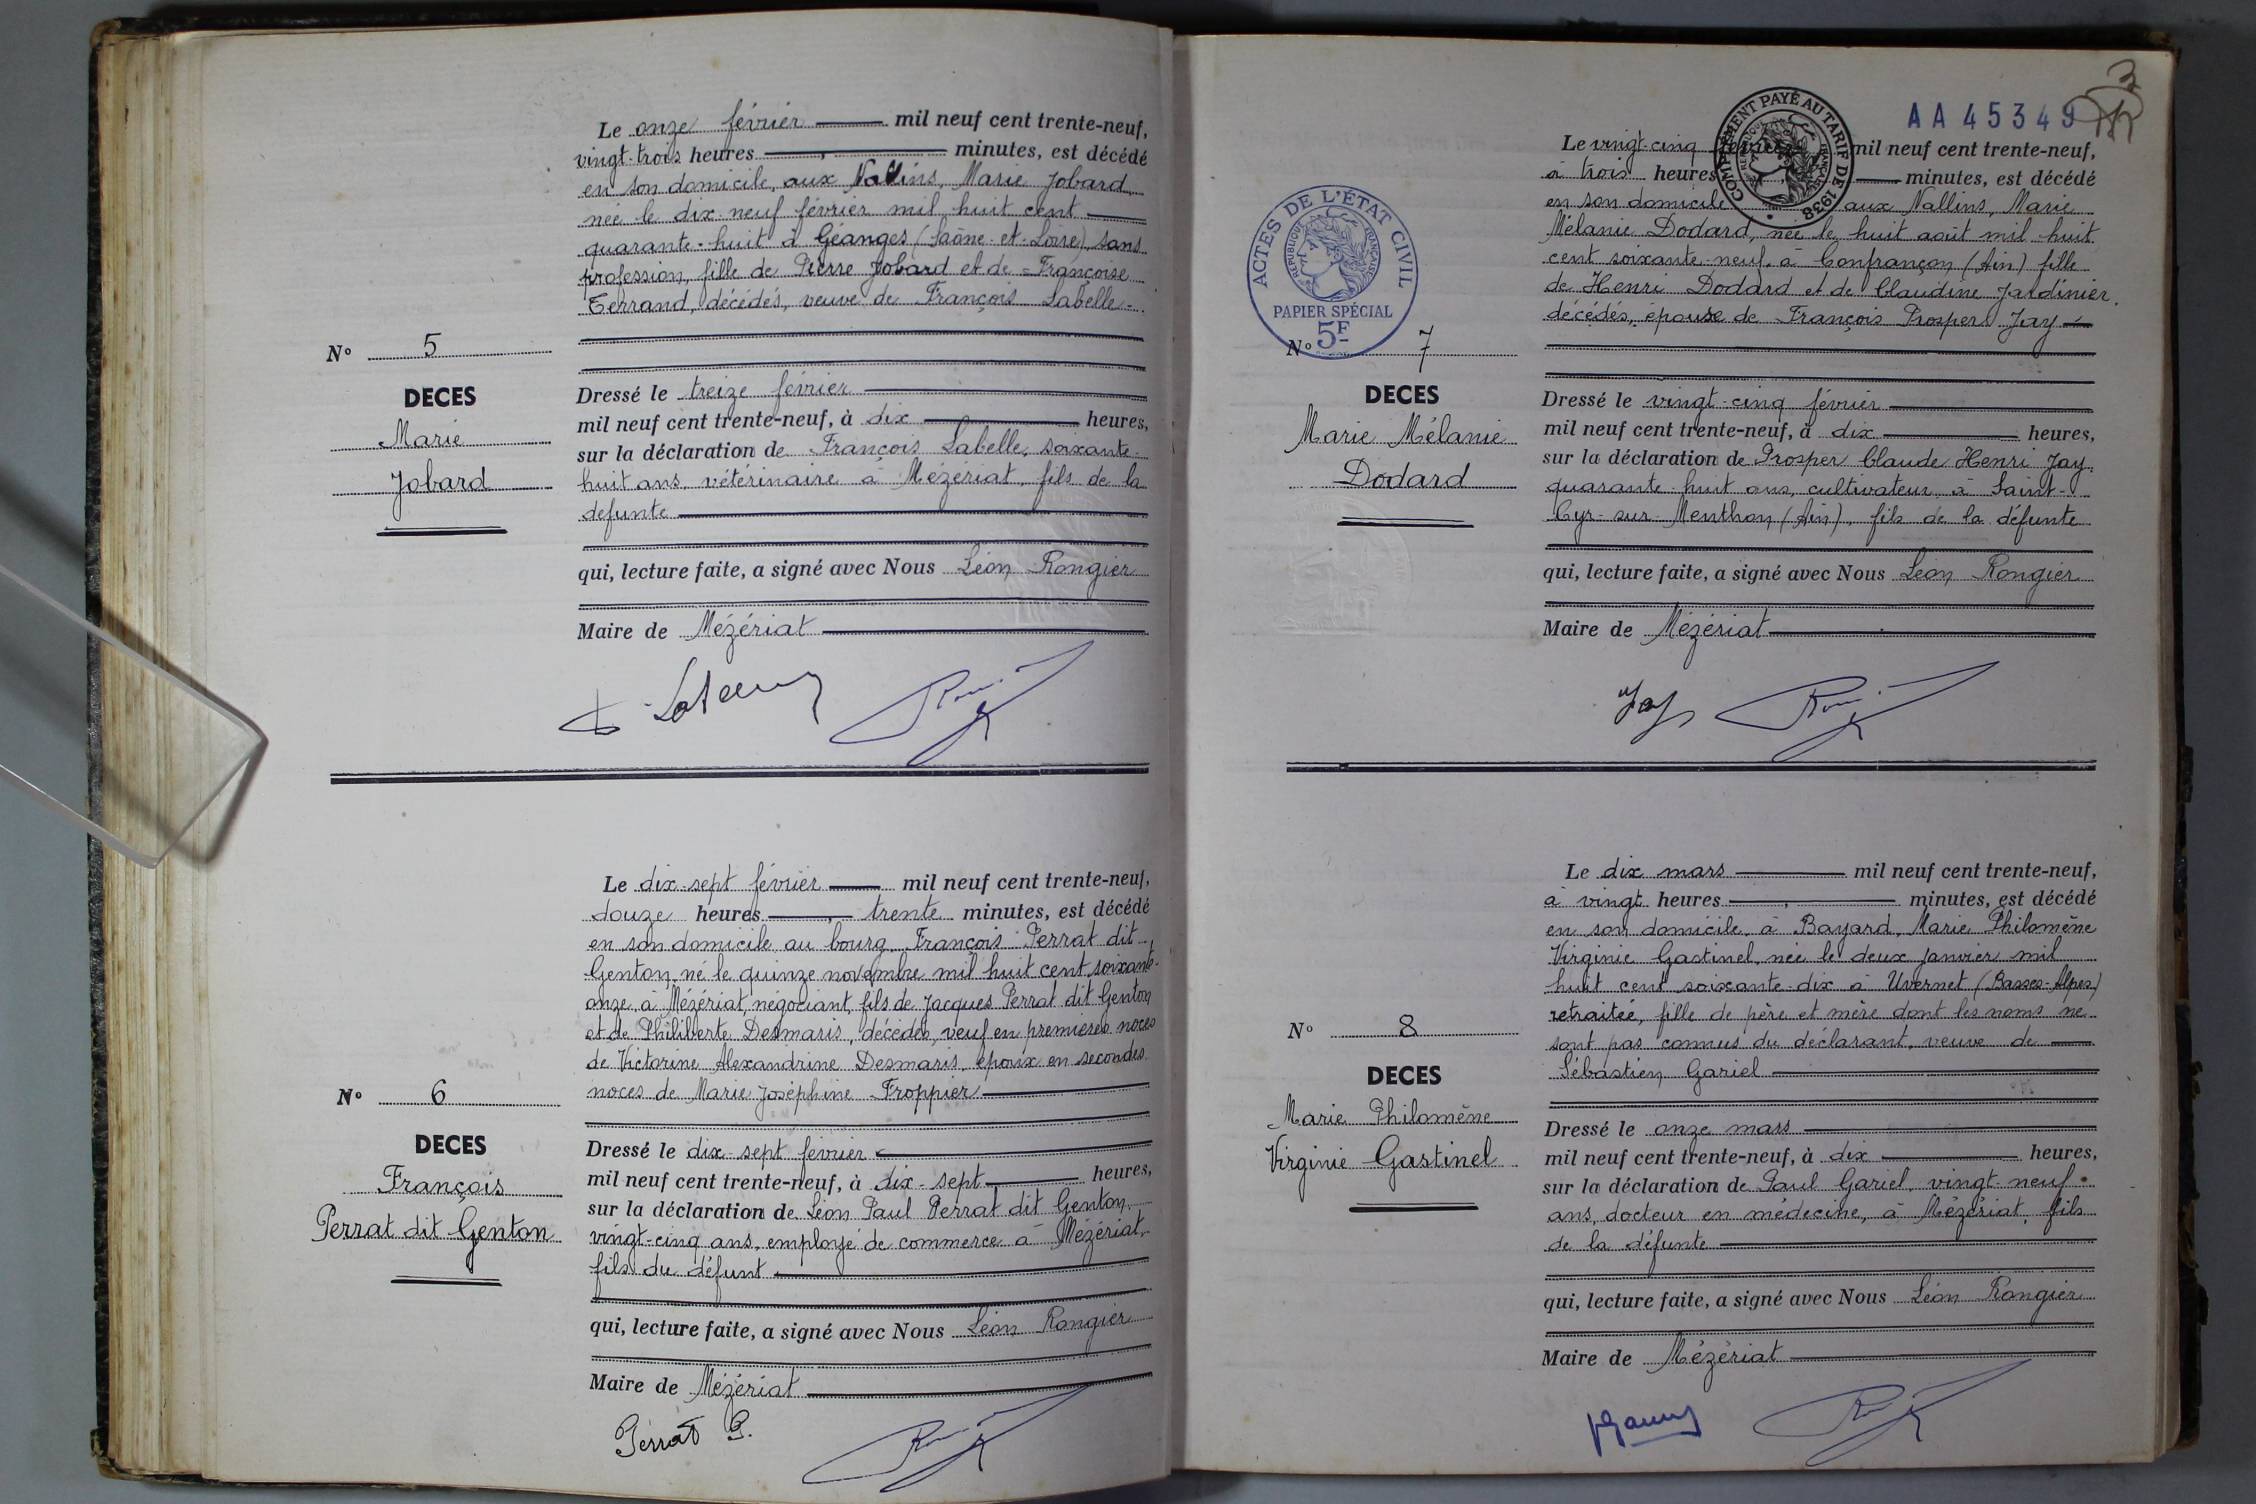 Le onze février mil neuf cent trente-neuf,
vingt-trois heures minutes, est décédé
en son domicile, aux Nallins, Marie Jobard,
née le dix-neuf février mil huit cent
quarante-huit à Géanges (Saône-et-Loire), sans
profession, fille de Pierre Jobard et de Françoise
Terrand, décédés, veuve de François Labelle
N° 5
DECES
Marie
Jobard
Dressé le treize février
mil neuf cent trente-neuf, à dix heures,
sur la déclaration de François Labelle, soixante-
huit ans, vétérinaire à Mézériat, fils de la
defunte
qui, lecture faite, a signé avec Nous Léon Rongier
Maire de Mézériat
Le dix-sept février mil neuf cent trente-neuf,
douze heures trente minutes, est décédé
en son domicile au bourg, François Perrat dit
Genton, né le quinze novembre mil huit cent soixante-
onze à Mézériat, négociant, fils de Jacques Perrat dit Genton
et de Philiberte Desmaris, décédés, veuf en premières noces
de Victorine Alexandrine Desmaris, époux en secondes
noces de Marie Joséphine Froppier
N° 6
DECES
François
Perrat dit Genton
Dressé le dix-sept février
mil neuf cent trente-neuf, à dix-sept heures,
sur la déclaration de Léon Paul Perrat dit Genton,
vingt-cinq ans, employé de commerce à Mézériat,
fils du défunt
qui, lecture faite, a signé avec Nous Léon Rongier
Maire de Mézériat
Perrat
3
AA 45349
COMPLEMENT PAYÉ AU TARIF DE 1938
REPUBLIQUE FRANÇAISE
ACTES DE L'ÉTAT CIVIL
REPUBLIQUE FRANÇAISE
PAPIER SPÉCIAL
5F
Le vingt-cinq février mil neuf cent trente-neuf,
à trois heures minutes, est décédé
en son domicile aux Nallins, Marie
Mélanie Dodard, née le huit août mil huit
cent soixante-neuf, à Confrançon (Ain) fille
de Henri Dodard et de Claudine Jardinier,
décédés, épouse de François Prosper Jay
N° 7
DECES
Marie Mélanie
Dodard
Dressé le vingt-cinq février
mil neuf cent trente-neuf, à dix heures,
sur la déclaration de Prosper Claude Henri Jay,
quarante-huit ans, cultivateur à Saint-
Cyr-sur-Menthon (Ain), fils de la défunte
qui, lecture faite, a signé avec Nous Léon Rongier
Maire de Mézériat
Jay
Le dix mars mil neuf cent trente-neuf,
à vingt heures minutes, est décédé
en son domicile, à Bayard, Marie Philomène
Virginie Gastinel, née le deux janvier mil
huit cent soixante-dix à Uvernet (Basses-Alpes)
retraitée, fille de père et mère dont les noms ne
sont pas connus du déclarant, veuve de
Sébastien Gariel
N° 8
DECES
Marie Philomène
Virginie Gastinel
Dressé le onze mars
mil neuf cent trente-neuf, à dix heures,
sur la déclaration de Paul Gariel, vingt-neuf
ans, docteur en médecine, à Mézériat, fils
de la défunte
qui, lecture faite, a signé avec Nous Léon Rongier
Maire de Mézériat